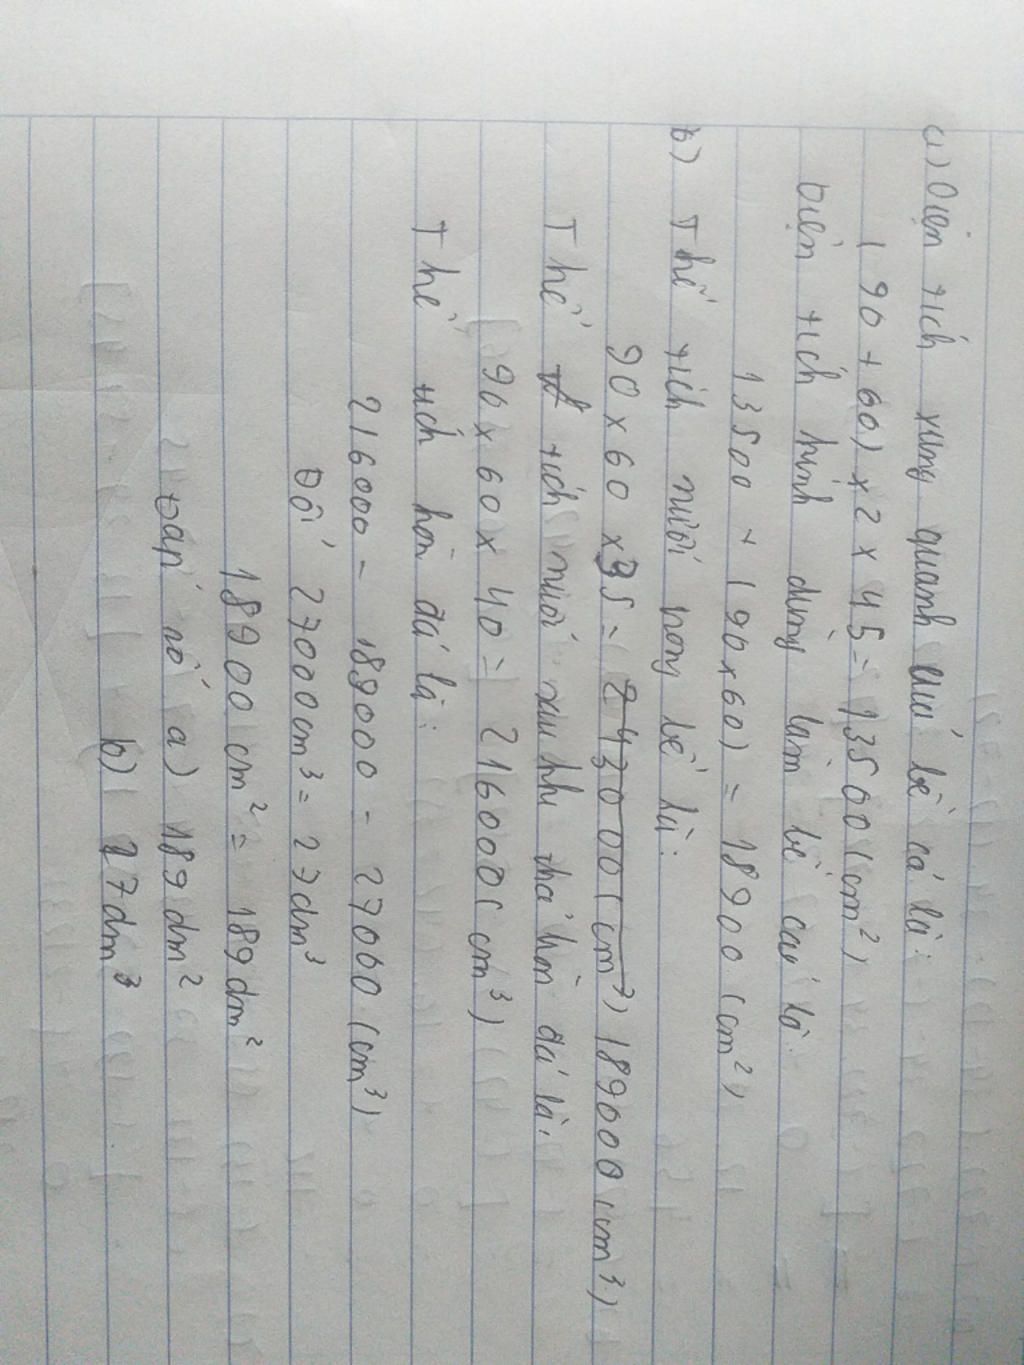 a) Diện tích xung quanh của bể cá là:
( 90 + 60) x 2 x 45 = 13500 (cm²)
Diện tích kính dùng làm bể cá là
13500 + ( 90 x 60) = 18900 (cm²)
b) Thể tích nước trong bể là:
90 x 60 x 35 = 243000 (cm³) 189000 (cm³)
Thể tích nước sau khi thả hòn đá là:
90 x 60 x 40 = 216000 ( cm³)
Thể tích hòn đá là:
216000 - 189000 = 27000 (cm³)
Đổi 27000cm³ = 27dm³
18900 cm² = 189dm²
Đáp số a) 189dm²
b) 27dm³